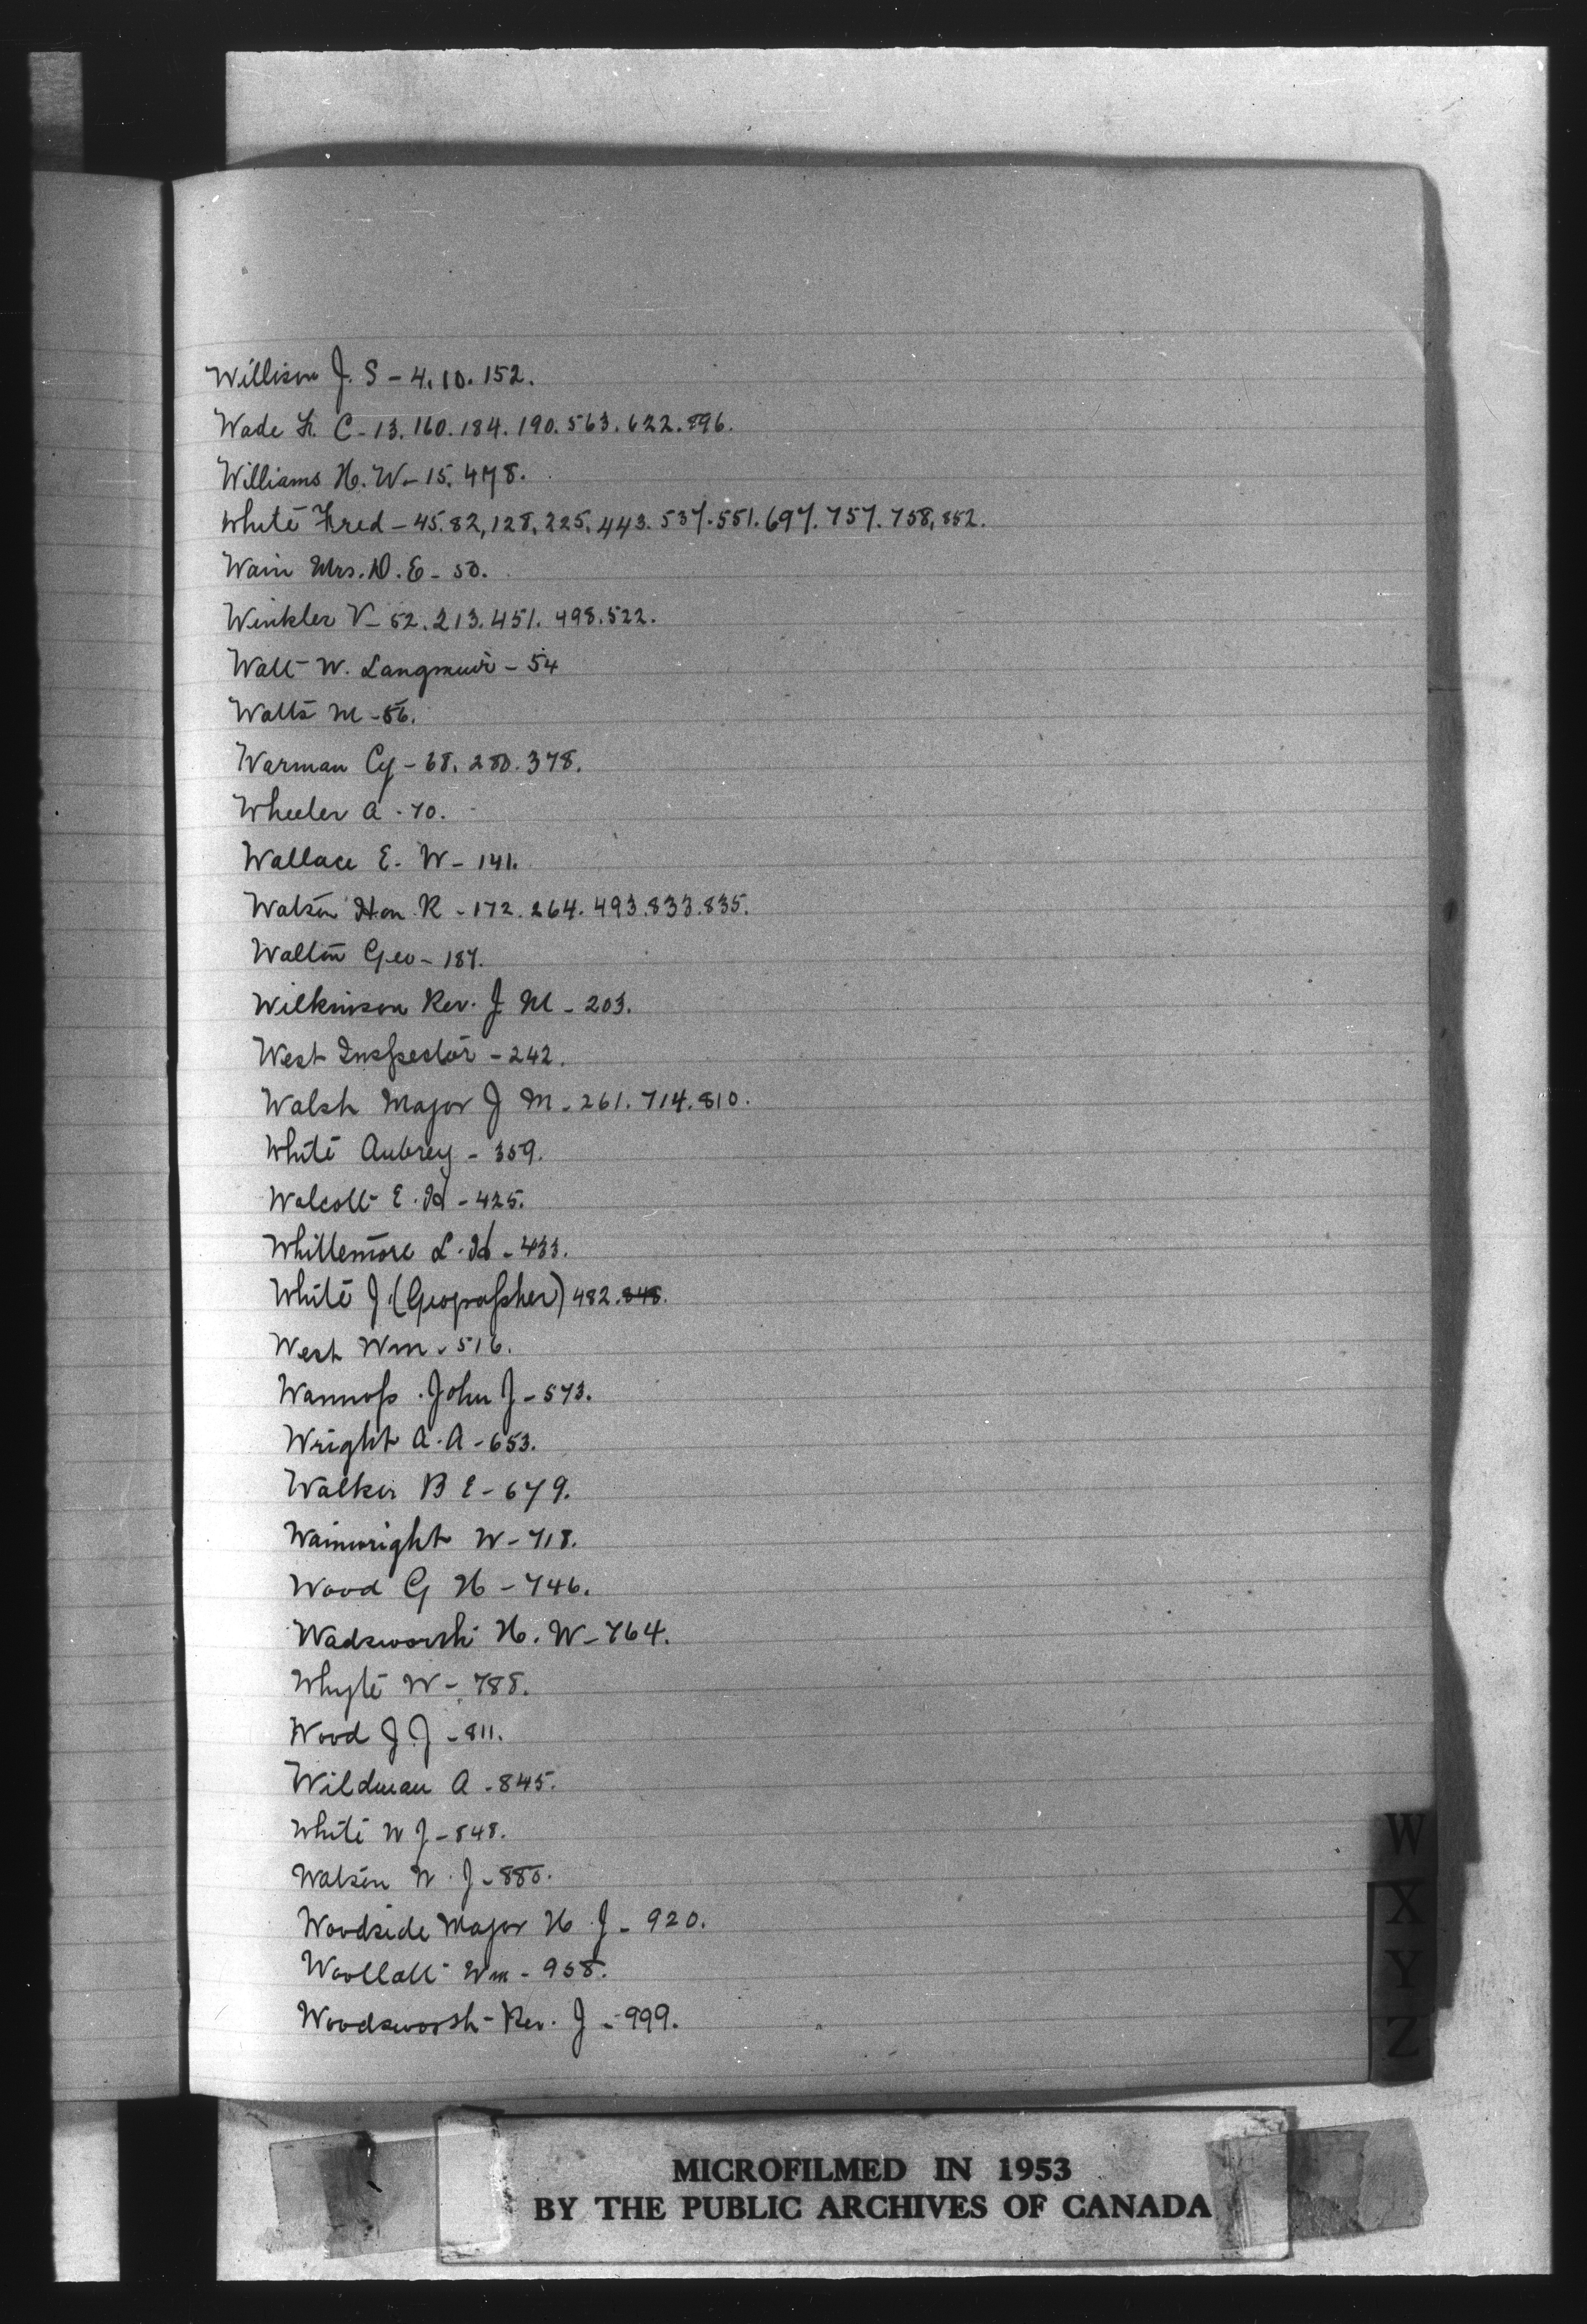 Willison J. S - 4. 10. 152.
Wade F. C - 13. 160. 184. 190. 563. 622. 896.
Williams H. W - 15. 478.
White Fred - 45. 82, 128, 225, 443. 537. 551. 697. 757. 758, 852.
Wain Mrs. D. E - 50.
Winkler V - 52. 213. 451. 498. 522.
Watt W. Langmuir - 54
Watts M - 56.
Warman Cy - 68. 280. 378.
Wheeler A - 70.
Wallace E. W - 141.
Watson Hon. R - 172. 264. 493. 833. 835.
Walton Geo - 187.
Wilkinson Rev. J M - 203.
West Inspector - 242.
Walsh Major J M - 261. 714. 810.
White Aubrey - 359.
Walcott E. H - 425.
Whittemore L. H - 433.
White J. (Geographer) 482. 848.
West Wm - 516.
Wannop John J - 573.
Wright A. A - 653.
Walker B E - 679.
Wainwright W - 718.
Wood G H - 746.
Wadsworth H. W - 764.
Whyte W - 788.
Wood J. J - 811.
Wildman A - 845.
White W J - 848.
Watson W. J - 880.
Woodside Major H. J - 920.
Woollatt Wm - 958.
Woodsworth Rev. J - 999.
W
X
Y
Z
MICROFILMED IN 1953
BY THE PUBLIC ARCHIVES OF CANADA